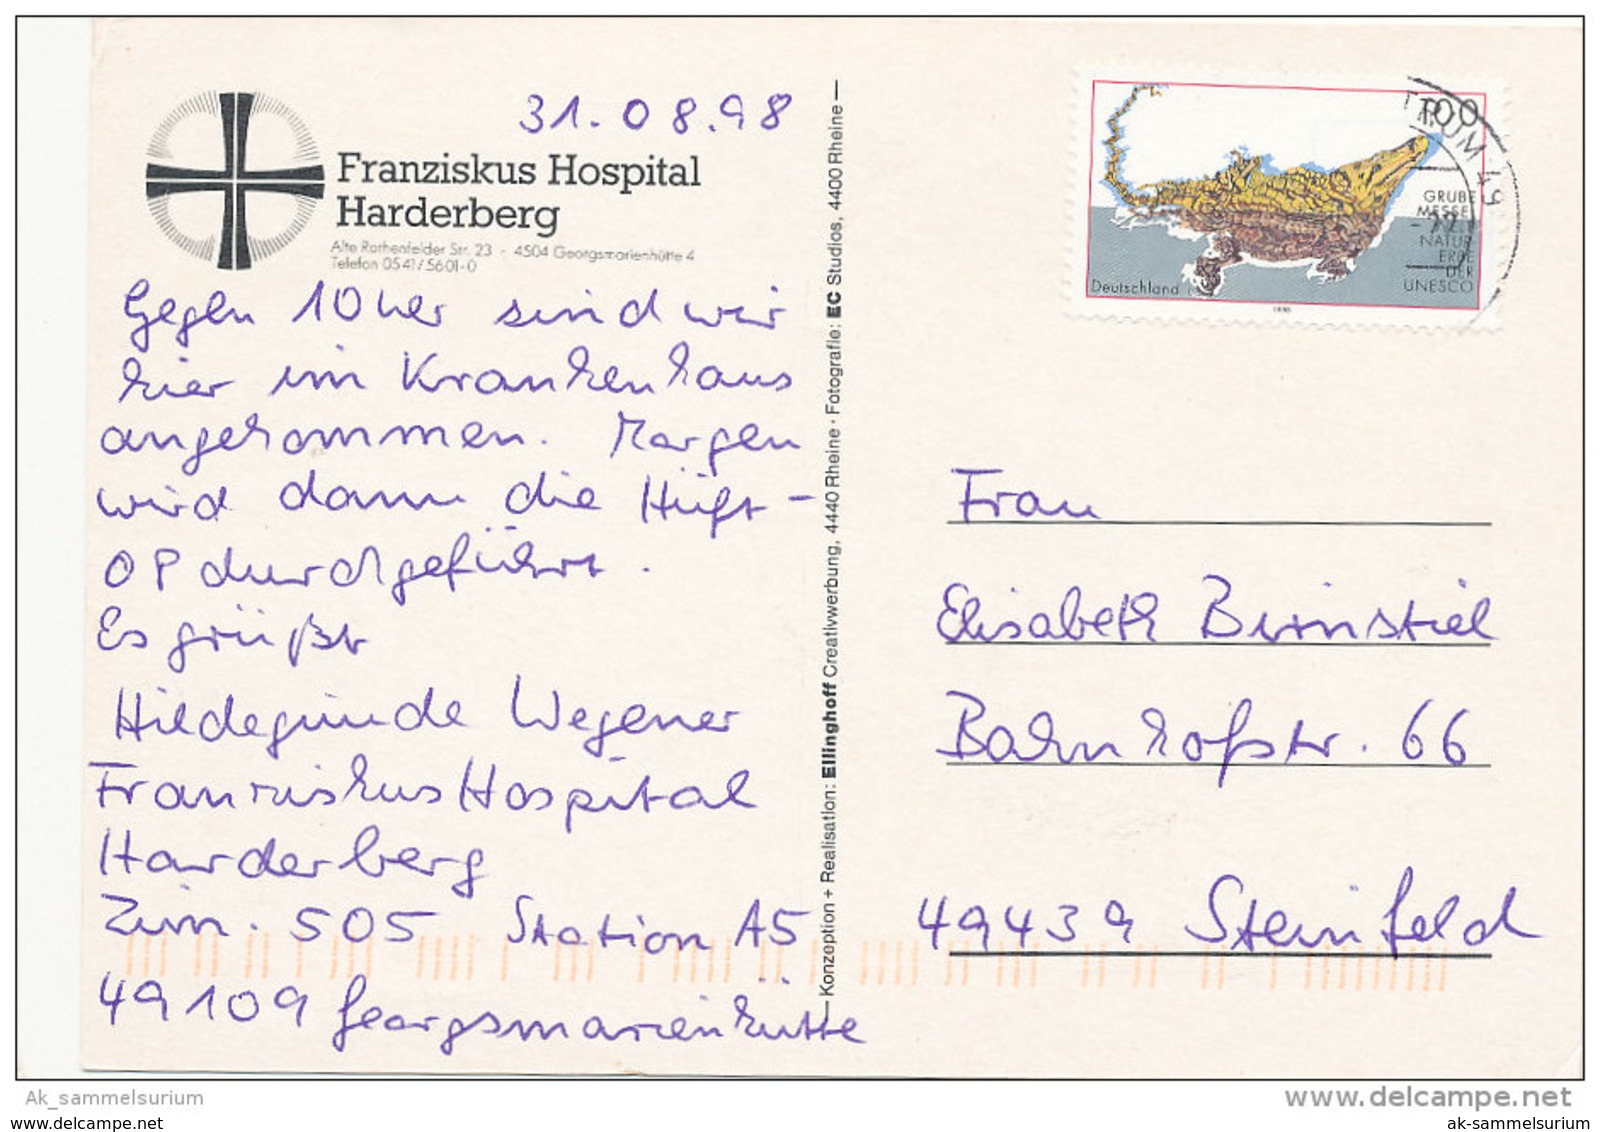 31.08.98
Franziskus Hospital
Harderberg
Alte Rothenfelder Str. 23 - 4504 Georgsmarienhütte 4
Telefon 0541/5601-0
Gegen 10 Uhr sind wir
hier im Krankenhaus
angekommen. Morgen
wird dann die Hüft-
OP durchgeführt.
Es grüßt
Hildegunde Wegener
Franziskus Hospital
Harderberg
Zim. 505 Station A5
49109 Georgsmarienhütte
Konzeption + Realisation: Ellinghoff Creativwerbung, 4440 Rheine · Fotografie: EC Studios, 4400 Rheine
100
GRUBE
MESSEL
WELT
NATUR
ERBE
DER
UNESCO
Deutschland
1998
49
Frau
Elisabeth Birnstiel
Bahnhofstr. 66
49439 Steinfeld
Ak_sammelsurium
www.delcampe.net
www.ak-sammelsurium
ak-sammelsurium